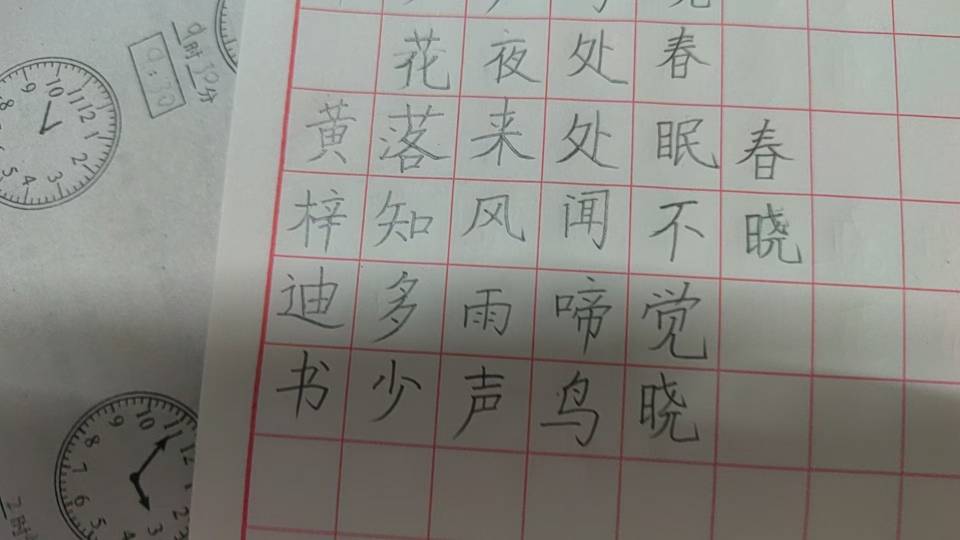 春晓
春眠不觉晓
处处闻啼鸟
夜来风雨声
花落知多少
黄梓迪书
9时30分
9:30